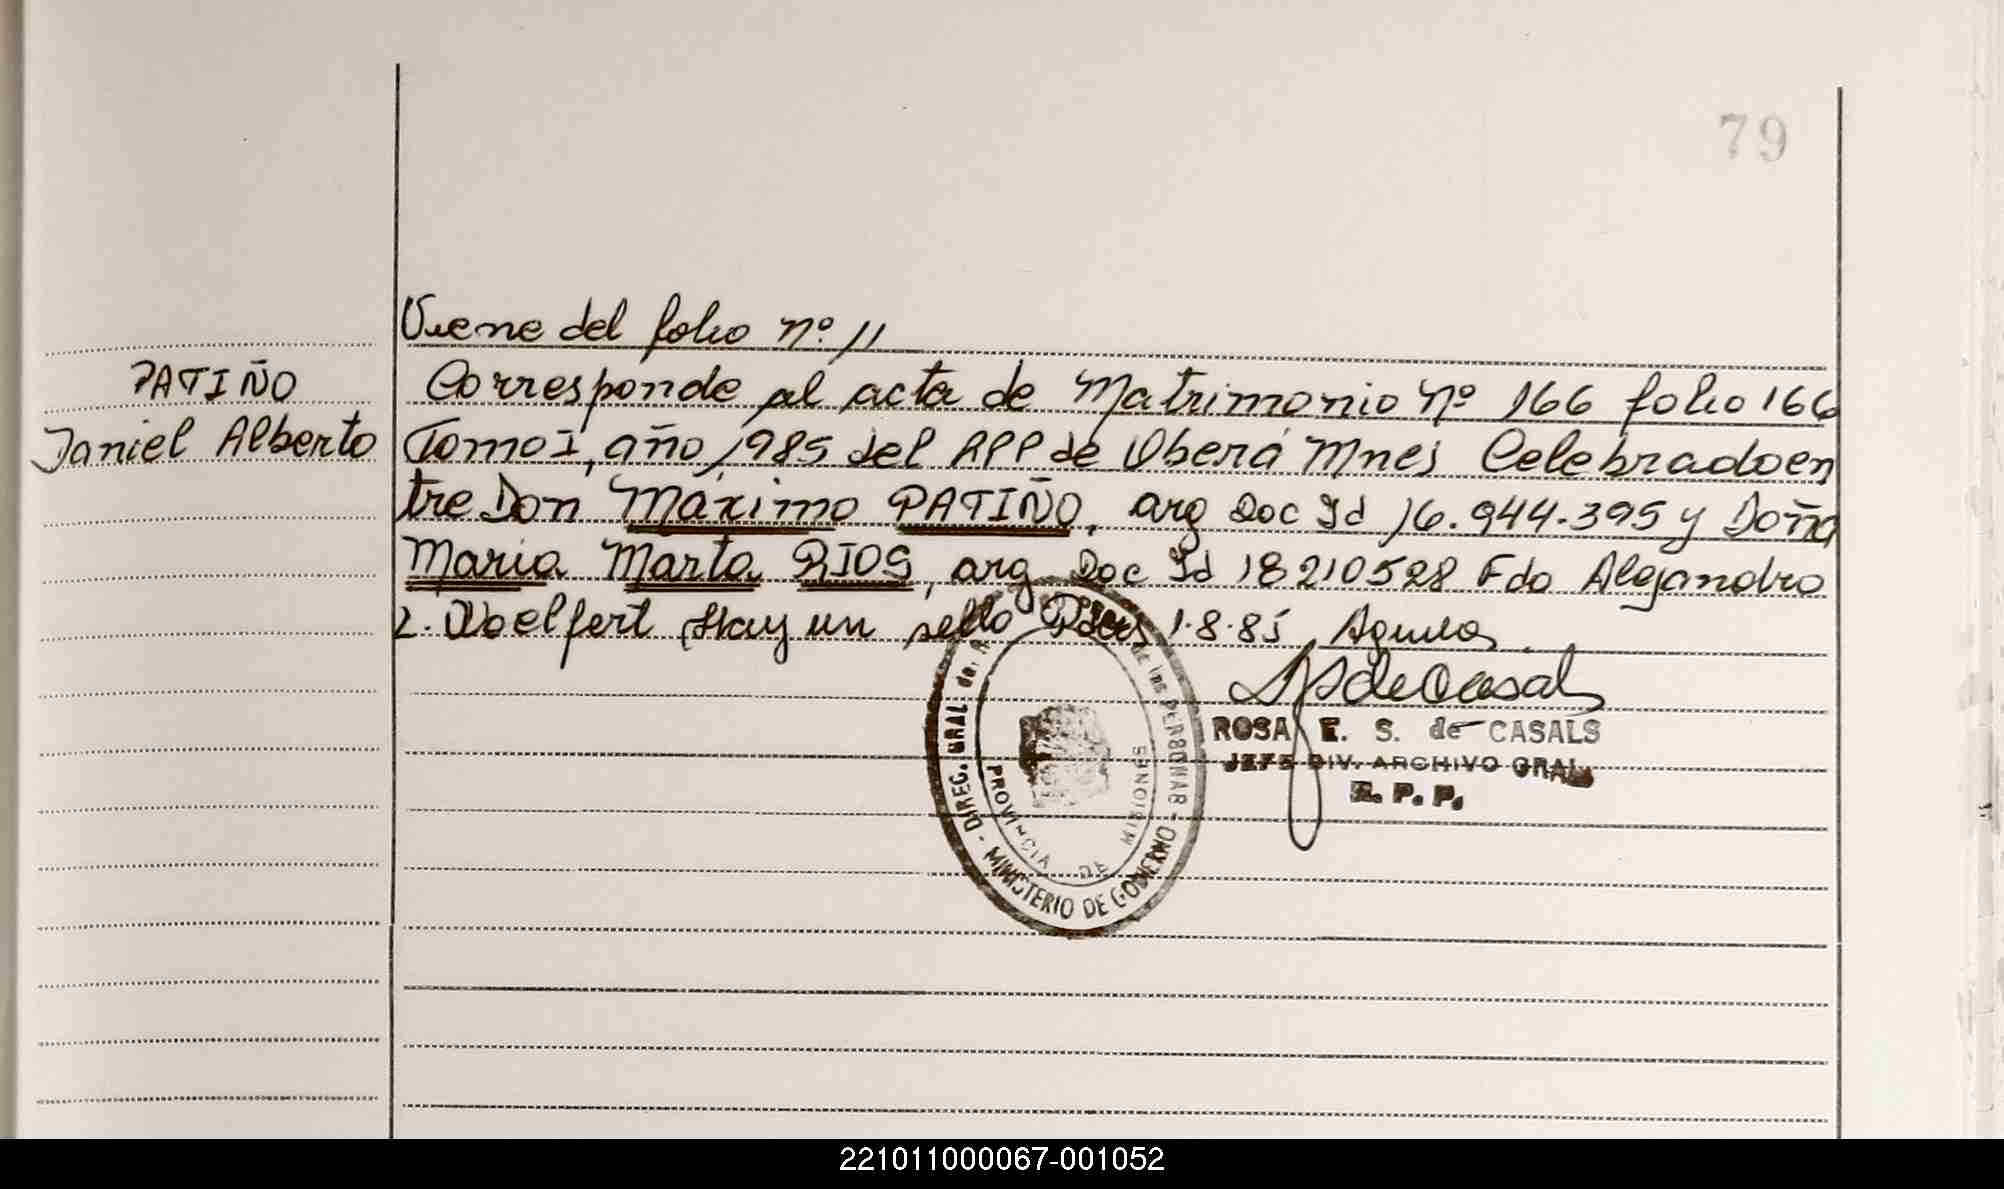 79
Viene del folio Nº 11
PATIÑO
Daniel Alberto
Corresponde al acta de Matrimonio Nº 166 folio 166
Tomo I, año 1985 del RPP de Oberá Mnes Celebrado en
tre Don Máximo PATIÑO, arg Doc Id 16.944.395 y Doña
Maria Marta RIOS, arg Doc Id 18210528 Fdo Alejandro
2. Woelfert Hay un sello Pdas 1.8.85
ROSA E. S. de CASALS
JEFE DIV. ARCHIVO GRAL.
R. P. P.
DIREC. GRAL. de las PERSONAS - MINISTERIO DE GOBIERNO -
PROVINCIA DE MISIONES
221011000067-001052